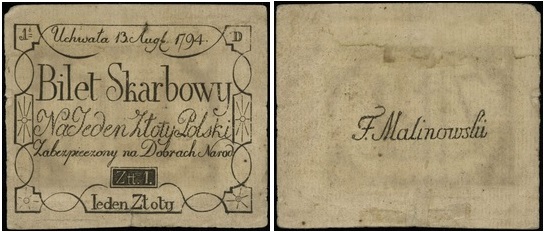 1º D
Uchwała 13. Augt. 1794.
Bilet Skarbowy
Na Jeden Złoty Polski
Zabezpieczony na Dobrach Narod
Złł. 1.
Ieden Złoty
F. Malinowskii